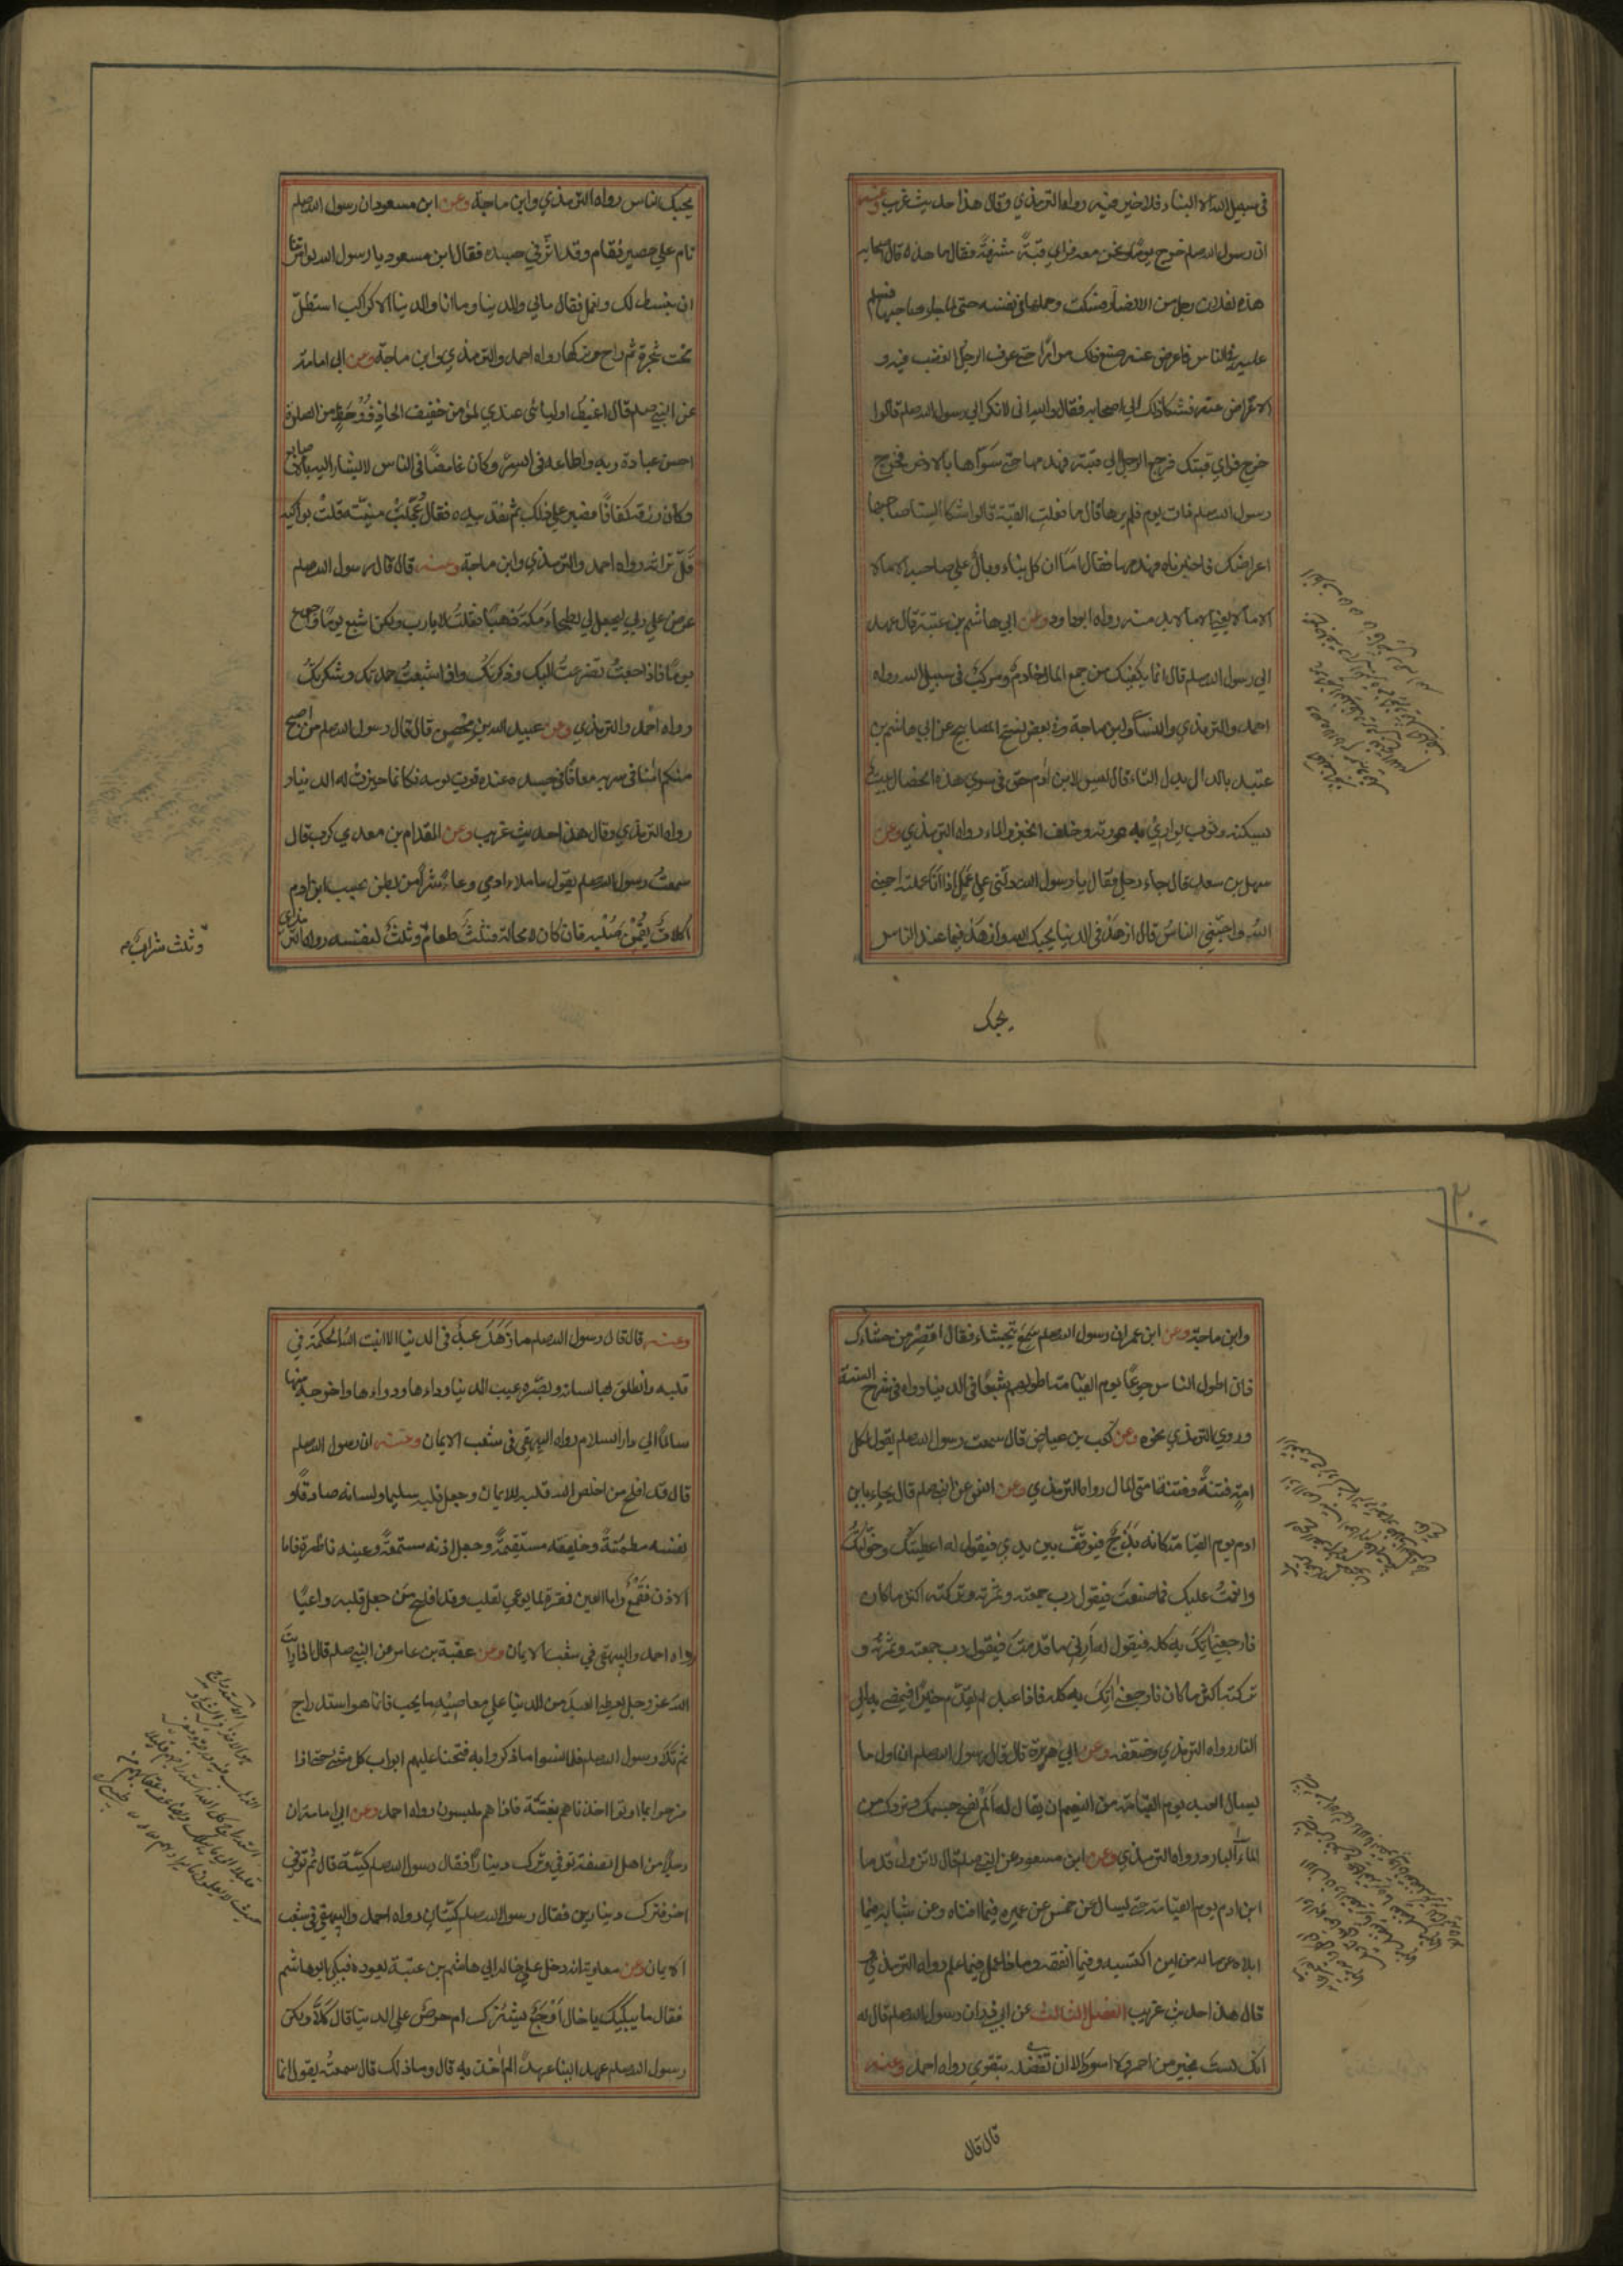 في سبيل الله الا البناء فلا خير فيه رواه الترمذي وقال هذا حديث غريب وعنه
ان رسول الله صلم خرج يومًا ونحن معه فراي قبّةً مشرفةً فقال ما هذه قال اصحابه
هذه لفلان رجل من الانصار فسكت وحملها في نفسه حتى لما جاء صاحبها فسلم
عليه في الناس فاعرض عنه صنع ذلك مرارًا حتى عرف الرجل الغضب فيه و
الاعراض عنه فشكا ذلك الي اصحابه فقال والله اني لانكر الي رسول الله صلم قالوا
خرج فراي قبتك فرجع الرجل الي قبته فهدمها حتى سوّاها بالارض فخرج
رسول الله صلم ذات يوم فلم يرها قال ما فعلت القبّة قالوا شكا الينا صاحبها
اعراضك فاخبرناه فهدمها فقال امّا ان كل بناء وبالٌ علي صاحبه الا مالا
الا مالا يعني الا مالا بد منه رواه ابوداود وعن ابي هاشم بن عتبة قال عهد
الي رسول الله صلم قال انما يكفيك من جمع المال خادمٌ ومركبٌ في سبيل الله رواه
احمد والترمذي والنسائي وابن ماجة وفي بعض نسخ المصابيح عن ابي هاشم بن
عتبد بالدال بدل التاء قال ليس لابن ادم حق في سوي هذه الخصال بيتٌ
يسكنه وثوب يواري به عورته وجلف الخبز والماء رواه الترمذي وعن
سهل بن سعد قال جاء رجل فقال يا رسول الله دلّني علي عملٍ اذا انا عملته احبني
اللهُ واحبّني الناسُ قال ازهد في الدنيا يحبك الله وازهد فيما عند الناس
يحبك
يحبك الناس رواه الترمذي وابن ماجة وعن ابن مسعود ان رسول الله صلم
نام علي حصير فقام وقد اثّر في جسده فقال ابن مسعود يا رسول الله لو امرتنا
ان نبسط لك ونعمل فقال مالي وللدنيا وما انا والدنيا الا كراكب استظلّ
تحت شجرة ثم راح وتركها رواه احمد والترمذي وابن ماجة وعن ابي امامة
عن النبي صلم قال اغبط اوليائي عندي لمؤمن خفيف الحاذ ذو حظٍ من الصلوة
احسن عبادة ربه واطاعه في السر وكان غامضًا في الناس لا يشار اليه بالاصابع
وكان رزقه كفافًا فصبر علي ذلك ثم نقد بيده فقال عُجّلت منيّته قلّت بواكيه
قلّ تراثه رواه احمد والترمذي وابن ماجة وعنه قال قال رسول الله صلم
عرض علي ربي ليجعل لي بطحاء مكة ذهبًا فقلتُ لا يا رب ولكن اشبع يومًا واجوع
يومًا فاذا جعتُ تضرعتُ اليك وذكرتكَ واذا شبعتُ حمدتك وشكرتكَ
رواه احمد والترمذي وعن عبيد الله بن محصن قال قال رسول الله صلم من اصبح
منكم امنًا في سربه معافًا في جسده عنده قوت يومه فكانما حيزت له الدنيا
رواه الترمذي وقال هذا حديث غريب وعن المقدام بن معدي كرب قال
سمعتُ رسول الله صلم يقول ما ملا ادمي وعاءً شرًّا من بطن بحسب ابن ادم
اكلاتٌ يقمن صلبه فان كان لا محالة فثلثٌ طعامٌ وثلثٌ لنفسه رواه الترمذي
وثلث شرابٌ
٣٠٠
وابن ماجة وعن ابن عمر ان رسول الله صلم سمع رجلا يتجشاء فقال اقصر من جشاءك
فان اطول الناس جوعًا يوم القيامة اطولهم شبعًا في الدنيا رواه في شرح السنة
وروي الترمذي نحوه وعن كعب بن عياض قال سمعت رسول الله صلم يقول لكل
امة فتنةً وفتنة امتي المال رواه الترمذي وعن انس عن النبي صلم قال يجاء بابن
ادم يوم القيامة كانه بذجٌ فيوقف بين يدي الله فيقول له اعطيتك وخوّلتك
وانعمتُ عليك فما صنعتَ فيقول رب جمعته وثمّرته وتركته اكثر ما كان
فارجعني اتك به كله فيقول له ارني ما قدمت فيقول رب جمعته وثمّرته و
تركته اكثر ما كان فارجعني اتك به كله فاذا عبد لم يقدم خيرًا فيمضي به الي
النار رواه الترمذي وضعّفه وعن ابي هريرة قال قال رسول الله صلم ان اول ما
يسال العبد يوم القيامة من النعيم ان يقال له الم نصح جسمك ونروك من
الماء البارد رواه الترمذي وعن ابن مسعود عن النبي صلم قال لا تزول قدما
ابن ادم يوم القيامة حتى يسال عن خمس عن عمره فيما افناه وعن شبابه فيما
ابلاه وعن ماله من اين اكتسبه وفيما انفقه وماذا عمل فيما علم رواه الترمذي و
قال هذا حديث غريب الفصل الثالث عن ابي ذر ان رسول الله صلم قال له
انك لست بخير من احمر ولا اسود الا ان تفضله بتقوي رواه احمد وعنه
قال قال
وعنه قال قال رسول الله صلم ما زهد عبدٌ في الدنيا الا انبت الله الحكمة في
قلبه وانطلق لها لسانه وبصّره عيب الدنيا وداءها ودواءها واخرجه منها
سالمًا الي دار السلام رواه البيهقي في شعب الايمان وعنه ان رسول الله صلم
قال قد افلح من اخلص الله قلبه للايمان وجعل قلبه سليما ولسانه صادقًا و
نفسه مطمئنةً وخليقته مستقيمةً وجعل اذنه مستمعةً وعينه ناظرة فاما
الاذن فقمعٌ واما العين فمقرة لما يوعي القلب وقد افلح من جعل قلبه واعيًا
رواه احمد والبيهقي في شعب الايمان وعن عقبة بن عامر عن النبي صلم قال اذا رايت
الله عز وجل يعطي العبدَ من الدنيا علي معاصيه ما يحب فانما هو استدراج
ثم تلا رسول الله صلم فلما نسوا ما ذكروا به فتحنا عليهم ابواب كل شئ حتى اذا
فرحوا بما اوتوا اخذناهم بغتةً فاذا هم مبلسون رواه احمد وعن ابي امامة ان
رجلاً من اهل الصفة توفي وترك دينارًا فقال رسول الله صلم كيّة قال ثم توفي
اخر فترك دينارين فقال رسول الله صلم كيّتان رواه احمد والبيهقي في شعب
الايمان وعن معاوية انه دخل علي خاله ابي هاشم بن عتبة يعوده فبكي ابو هاشم
فقال ما يبكيك يا خال اوجعٌ يشئزك ام حرصٌ علي الدنيا قال كلّا ولكن
رسول الله صلم عهد الينا عهدًا لم اخذ به قال وما ذلك قال سمعته يقول انما